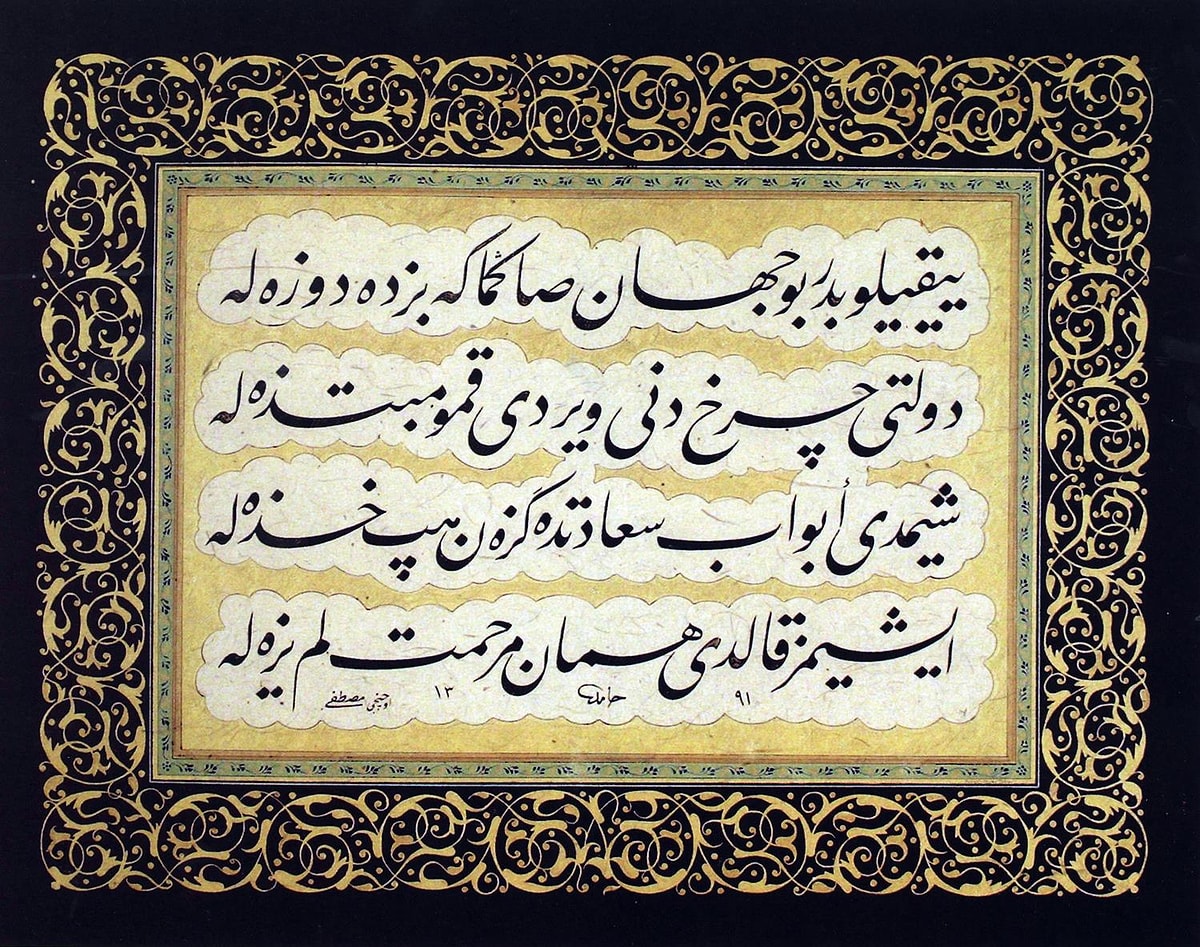 ییقیلوبدر بو جهان صاڭما که بزده دوزه له
دولتی چرخ دنی ویردی قمو مبتذه له
شیمدی أبواب سعادتده گزه ن هپ خذه له
ایشیمز قالدی همان مرحمت لم یزه له
٩١ ١٣ مصطفی